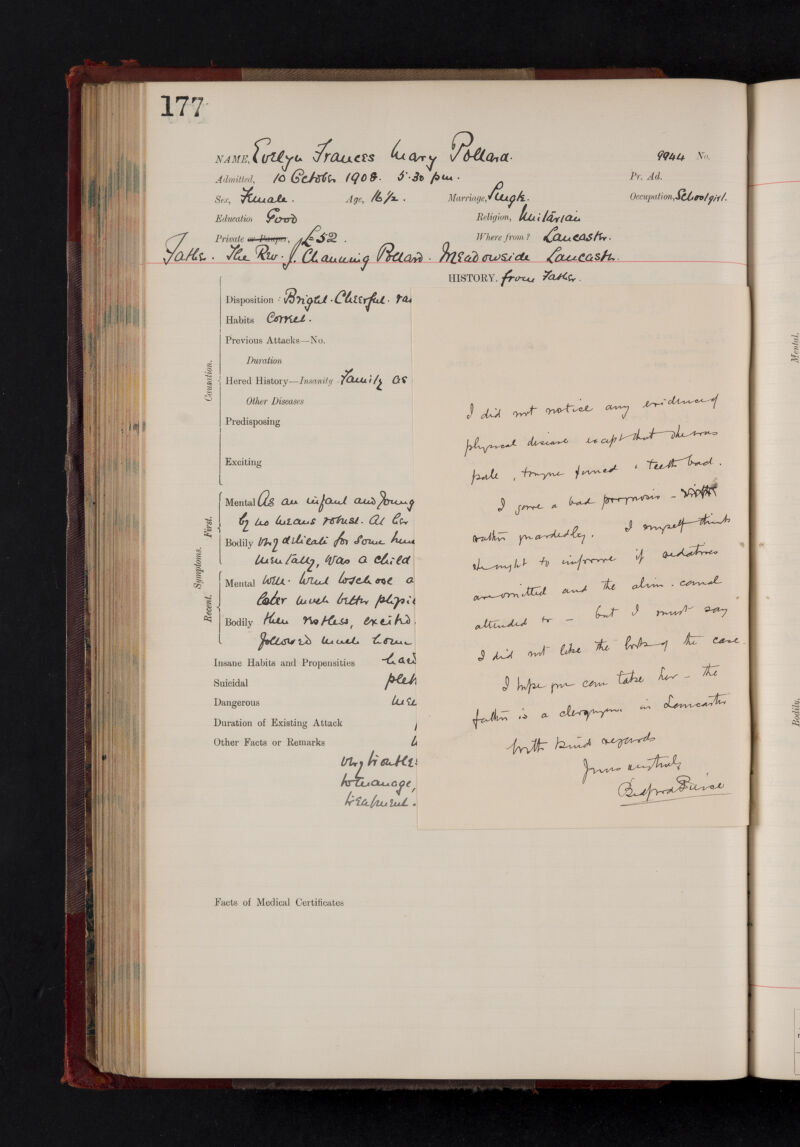 177
NAME, Evelyn Frances Mary Pollard. 9944 No.
Admitted, 10 October 1908. 5.30 pm. Pr. Ad.
Sex, Female. Age, 16½. Marriage, Single. Occupation, Schoolgirl.
Education Good Religion, Unitarian
Private or Pauper, £52. Where from? Lancaster.
Father. The Rev. J. Channing Pollard. Meadowside Lancaster.
HISTORY. from Father.
Causation.
Disposition Bright. Cheerful.
Habits Correct.
Previous Attacks—No.
Duration
Hered History—Insanity Family
Other Diseases
Predisposing
Exciting
Symptoms.
First.
Mental As an infant and young
by no means robust. At
Bodily Very delicate for some
mentally, was a child
Recent.
Mental well. Went to school
later much better
Bodily then restless, excited
followed much
Insane Habits and Propensities had
Suicidal
Dangerous
Duration of Existing Attack
Other Facts or Remarks
very
to manage,
treatment.
Facts of Medical Certificates
I did not notice any evidence of
physical disease except that she was
pale, tongue furred & teeth bad.
I gave a bad prognosis -
rather guardedly. I myself think
she ought to improve if sedatives
are omitted and the alim. canal
attended to - but I must say
I did not like the look of the case.
I hope you can take her - the
father is a clergyman in Lancaster
With kind regards
Yours
Bedford Pierce
Mental.
Bodily.